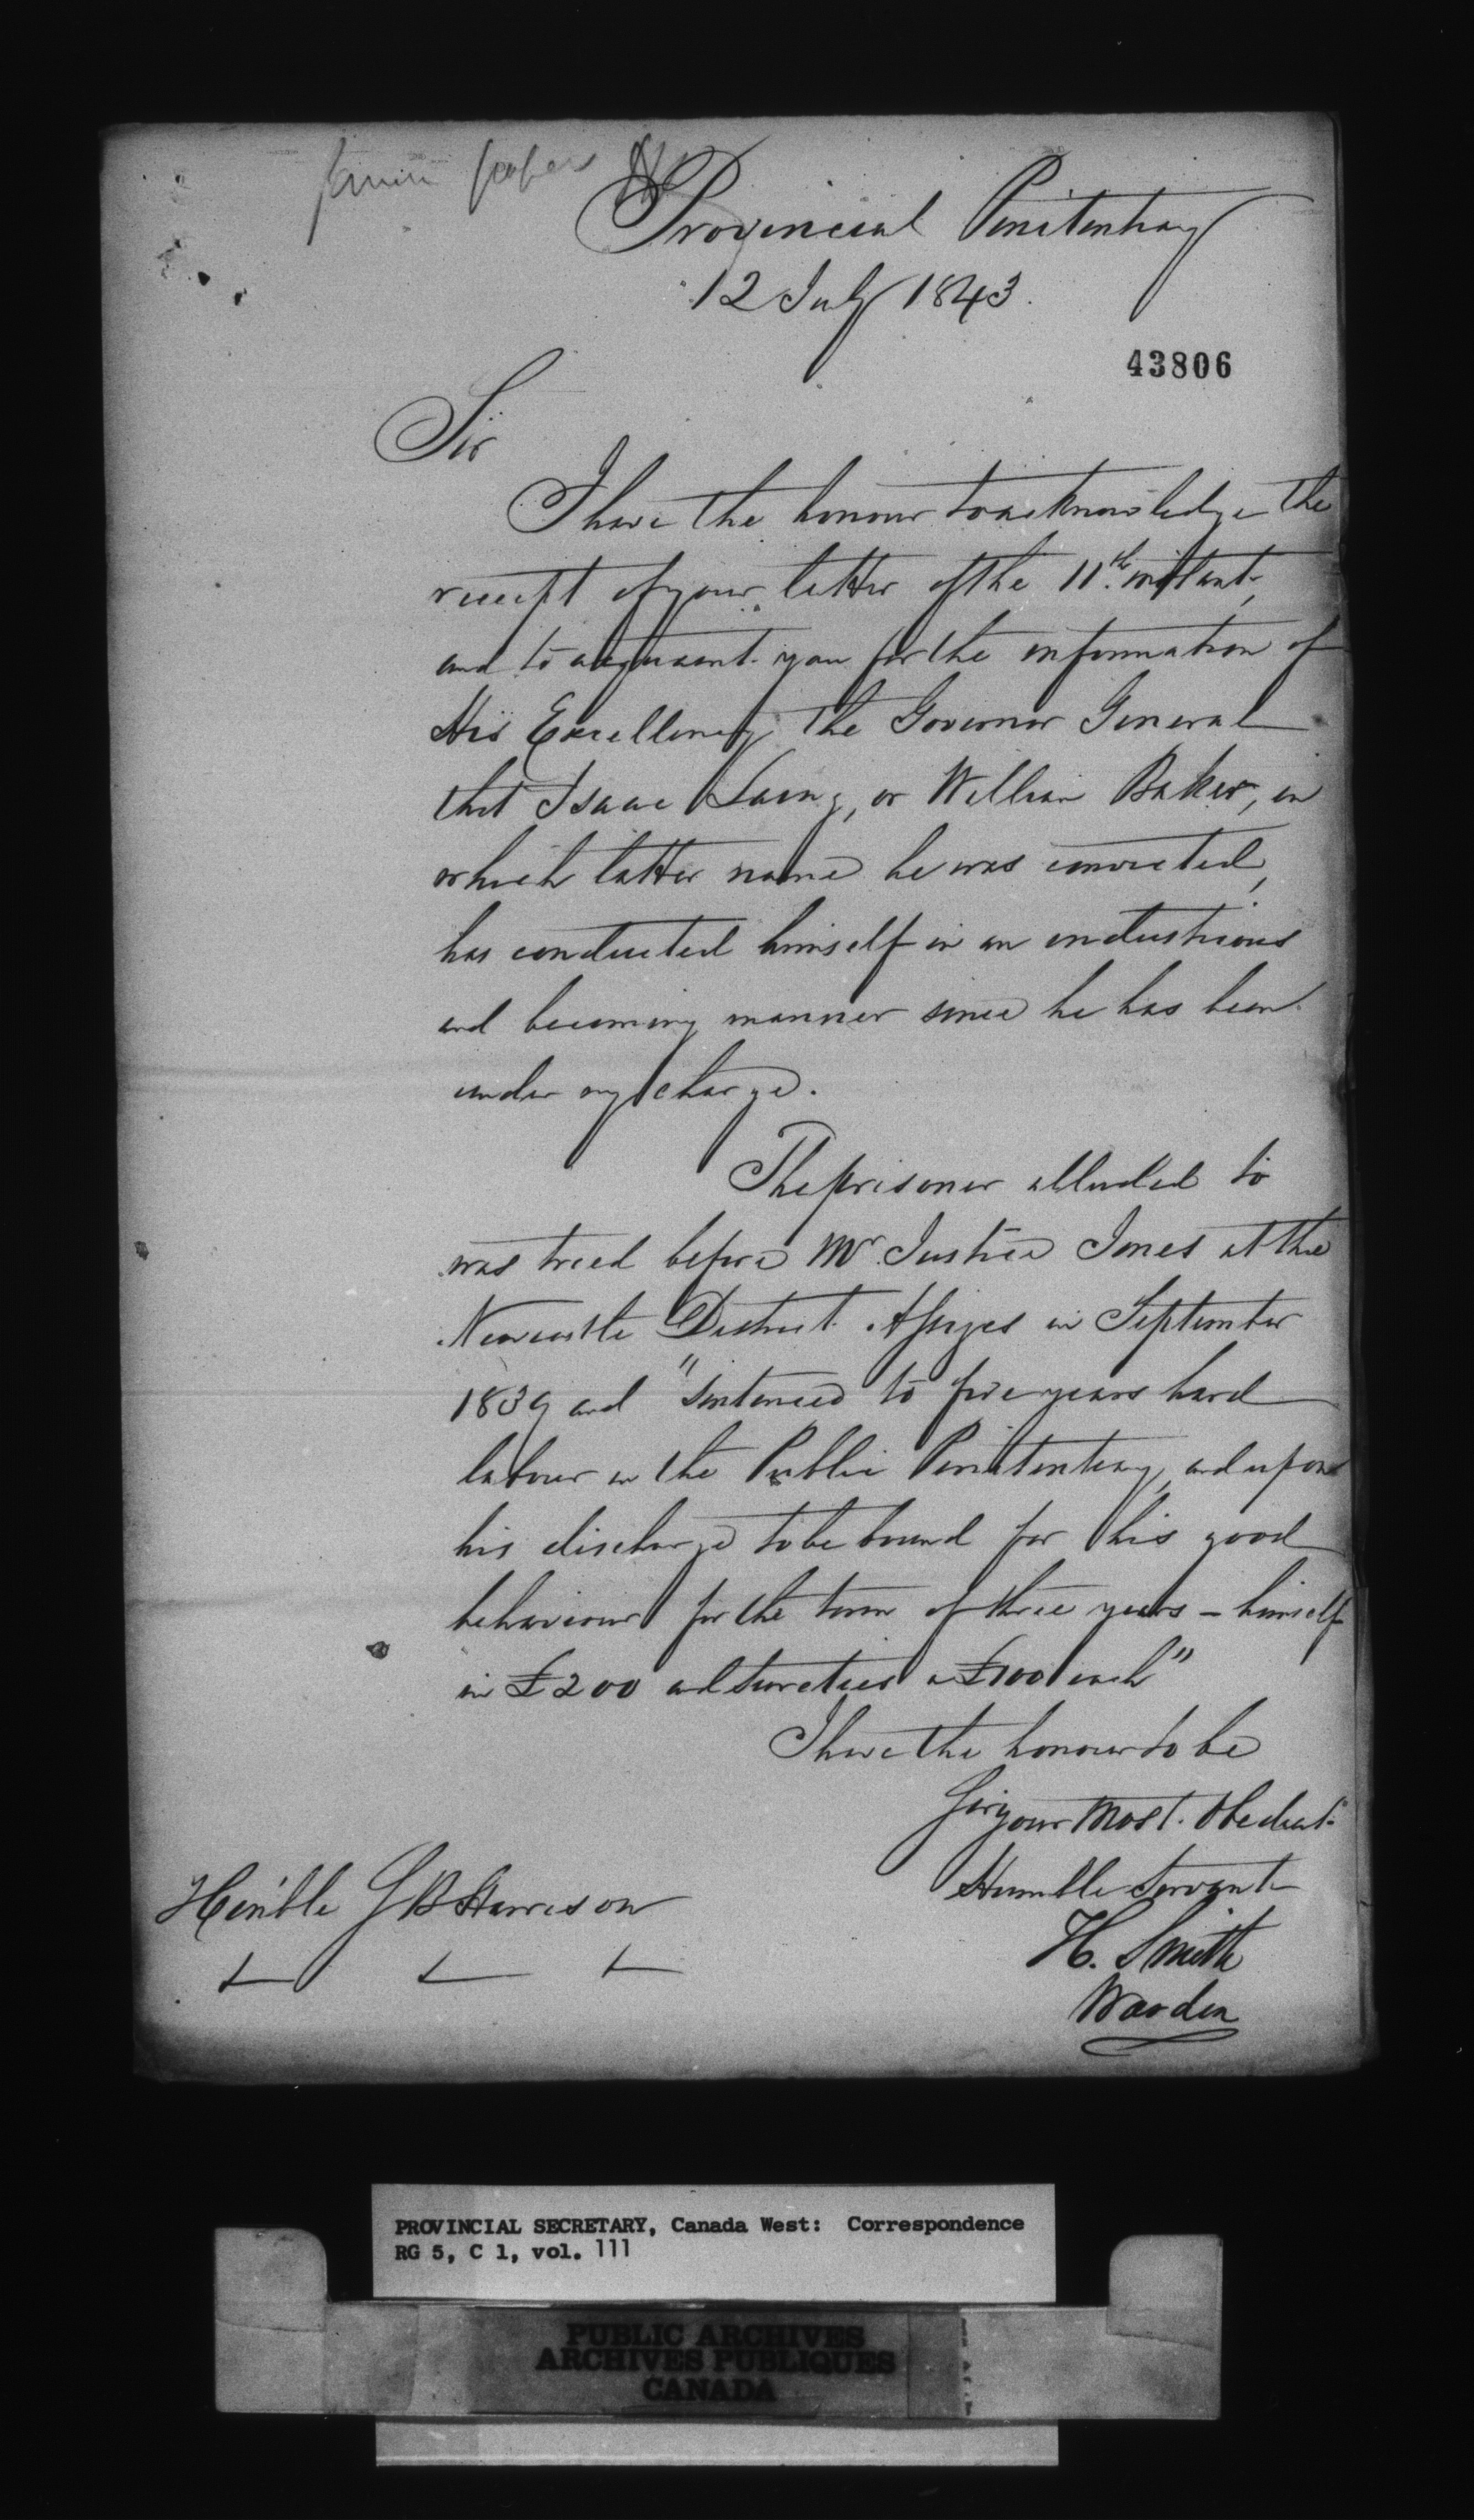 former papers
Provincial Penitentiary
12 July 1843.
43806
Sir
I have the honour to acknowledge the
receipt of your letter of the 11th. instant,
and to acquaint you for the information of
His Excellency the Governor General
that Isaac Laing, or William Baker, in
which latter name he was convicted,
has conducted himself in an industrious
and becoming manner since he has been
under my charge.
The prisoner alluded to
was tried before Mr. Justice Jones at the
Newcastle District Assizes in September
1839 and "sentenced to five years hard
labour in the Public Penitentiary, and upon
his discharge to be bound for his good
behaviour for the term of three years – himself
in £200 and sureties in £100 each"
I have the honour to be
Sir your most. Obedient.
Humble Servant
H. Smith
Warden
Hon'ble S B Harrison
PROVINCIAL SECRETARY, Canada West: Correspondence
RG 5, C 1, vol. 111
PUBLIC ARCHIVES
ARCHIVES PUBLIQUES
CANADA